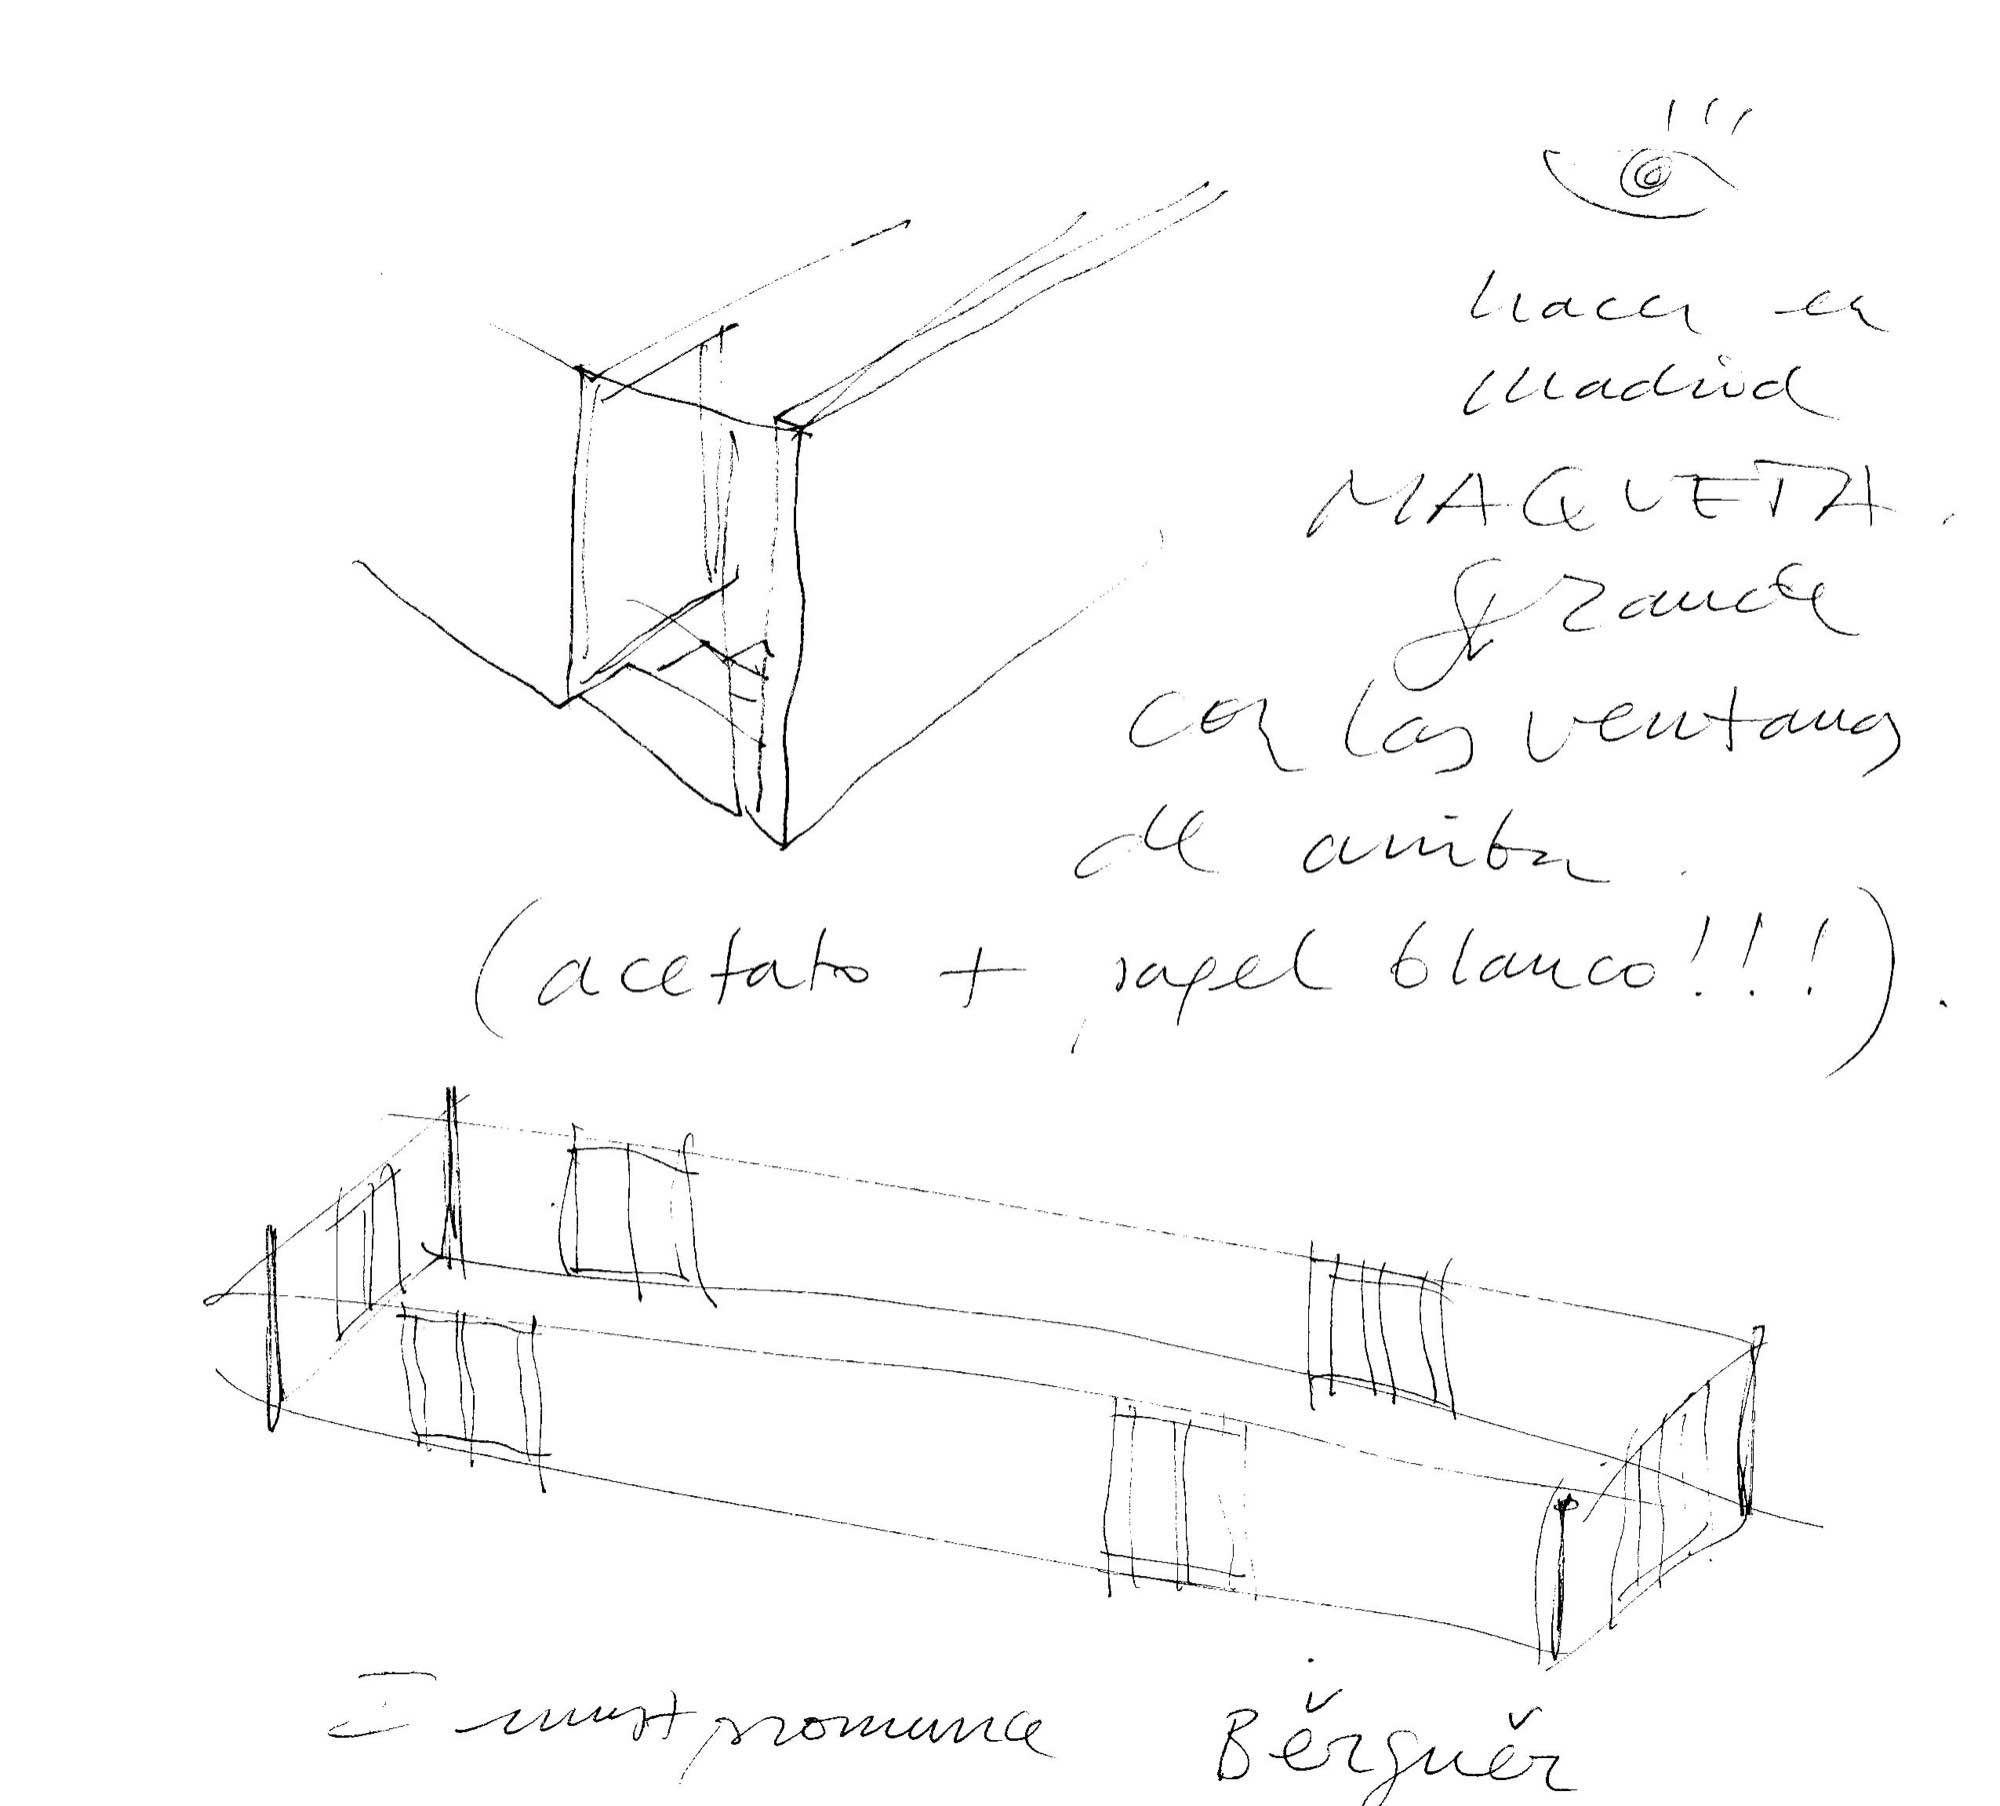 hacer en
Madrid
MAQUETA.
grande
con las ventanas
de arriba.
(acetato + papel blanco!!!).
I must pronounce Bĕrguĕr